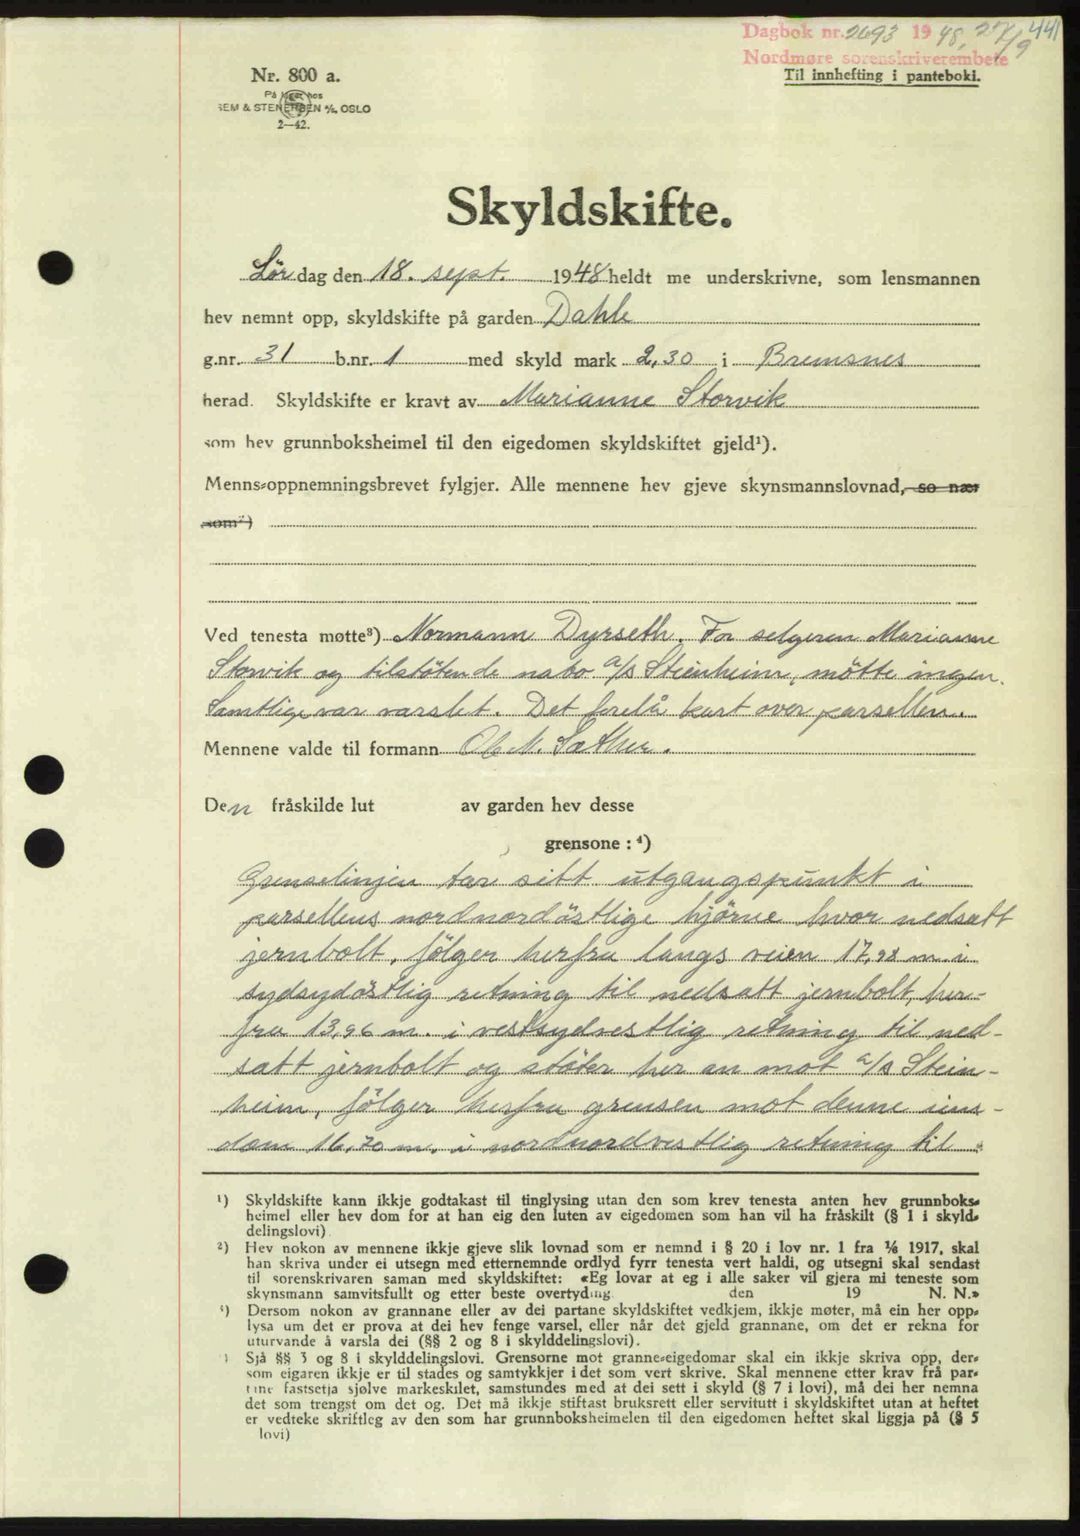 441
Dagbok nr. 2693 1948, 27/9
Nordmøre sorenskriverembete
Til innhefting i panteboki.
Nr. 800 a.
På lager hos
SEM & STENERSEN A/S, OSLO
2—42.
Skyldskifte.
Lør dag den 18. sept. 1948 heldt me underskrivne, som lensmannen
hev nemnt opp, skyldskifte på garden Dahle
g.nr. 31 b.nr. 1 med skyld mark 2,30 i Bremsnes
herad. Skyldskifte er kravt av Marianne Storvik
som hev grunnboksheimel til den eigedomen skyldskiftet gjeld¹).
Menns-oppnemningsbrevet fylgjer. Alle mennene hev gjeve skynsmannslovnad, so nær
som²)
Ved tenesta møtte³) Normann Dyrseth. For selgeren Marianne
Storvik og tilstötende nabo a/s Steinheim, mötte ingen.
Samtlige var varslet. Det forelå kart over parsellen.
Mennene valde til formann Ole N. Sæther.
Den fråskilde lut av garden hev desse
grensone : ⁴)
Grenselinjen tar sitt utgangspunkt i
parsellens nordnordöstlige hjörne hvor nedsatt
jernbolt, fölger herfra langs veien 17,98 m. i
sydsydöstlig retning til nedsatt jernbolt, her-
fra 13,96 m. i vestsydvestlig retning til ned-
satt jernbolt og stöter her an mot a/s Stein-
heim, fölger herfra grensen mot denne eien-
dom 16,70 m. i nordnordvestlig retning til
¹) Skyldskifte kann ikkje godtakast til tinglysing utan den som krev tenesta anten hev grunnboks-
heimel eller hev dom for at han eig den luten av eigedomen som han vil ha fråskilt (§ 1 i skyld-
delingslovi)
²) Hev nokon av mennene ikkje gjeve slik lovnad som er nemnd i § 20 i lov nr. 1 fra 1/6 1917, skal
han skriva under ei utsegn med etternemnde ordlyd fyrr tenesta vert haldi, og utsegni skal sendast
til sorenskrivaren saman med skyldskiftet: «Eg lovar at eg i alle saker vil gjera mi teneste som
skynsmann samvitsfullt og etter beste overtyding den 19 N. N.»
³) Dersom nokon av grannane eller av dei partane skyldskiftet vedkjem, ikkje møter, må ein her opp-
lysa um det er prova at dei hev fenge varsel, eller når det gjeld grannane, om det er rekna for
uturvande å varsla dei (§§ 2 og 8 i skylddelingslovi).
) Sjå §§ 3 og 8 i skylddelingslovi. Grensorne mot granne-eigedomar skal ein ikkje skriva opp, der-
som eigaren ikkje er til stades og samtykkjer i det som vert skrive. Skal mennene etter krav frå par-
tine fastsetja sjølve markeskilet, samstundes med at dei sett i skyld (§ 7 i lovi), må dei her nemna
det som trengst om det og. Det må ikkje stiftast bruksrett eller servitutt i skyldskiftet utan at heftet
er vedteke skriftleg av den som har grunnboksheimelen til den eigedomen heftet skal liggja på (§ 5
lovi)